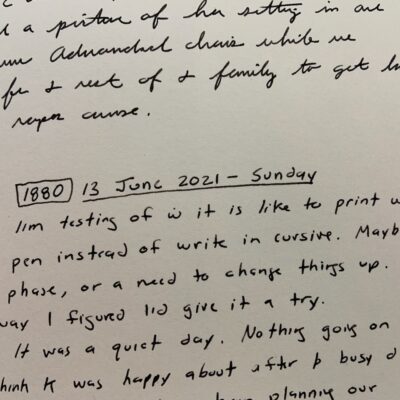 a picture of her sitting in one
Adirondack chairs while we
for & rest of & family to get
.
1880 13 June 2021 - Sunday
testing of it is like to print
pen instead of write in cursive. Mayb
phase, or a need to change things up.
way I figured I'd give it a try.
It was a quiet day. Nothing going on
think K was happy about after busy d
planning our